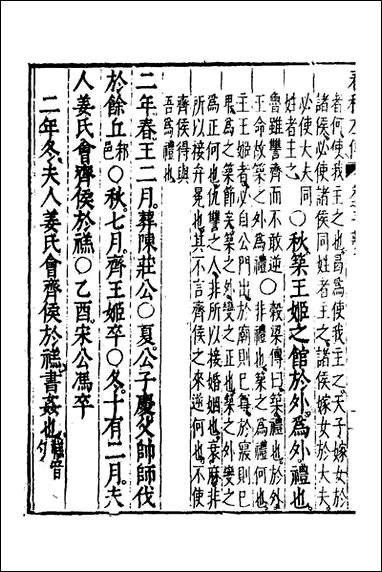 者何使我主之也曷爲使我主之天子嫁女於
諸侯必使諸侯同姓者主之諸侯嫁女於大夫
必使大夫同
姓者主之
〇秋築王姬之館於外爲外禮也
魯雖讐齊而不敢逆〇穀梁傳曰築禮也於外
王命故築之外爲禮〇非禮也築之爲禮何也
主王姬者必自公門出於廟則已尊於寢則已
卑爲之築節矣築之外變之正也築之外變之
爲正何也仇讐之人非所以接婚姻也衰麻非
所以接弁冕也其不言齊侯之來逆何也不使
齊侯得與
吾爲禮也
二年春王二月葬陳莊公〇夏公子慶父帥師伐
於餘丘邾邑〇秋七月齊王姬卒〇冬十有二月夫
人姜氏會齊侯於禚〇乙酉宋公馮卒
二年冬夫人姜氏會齊侯於禚書姦也禚音勺